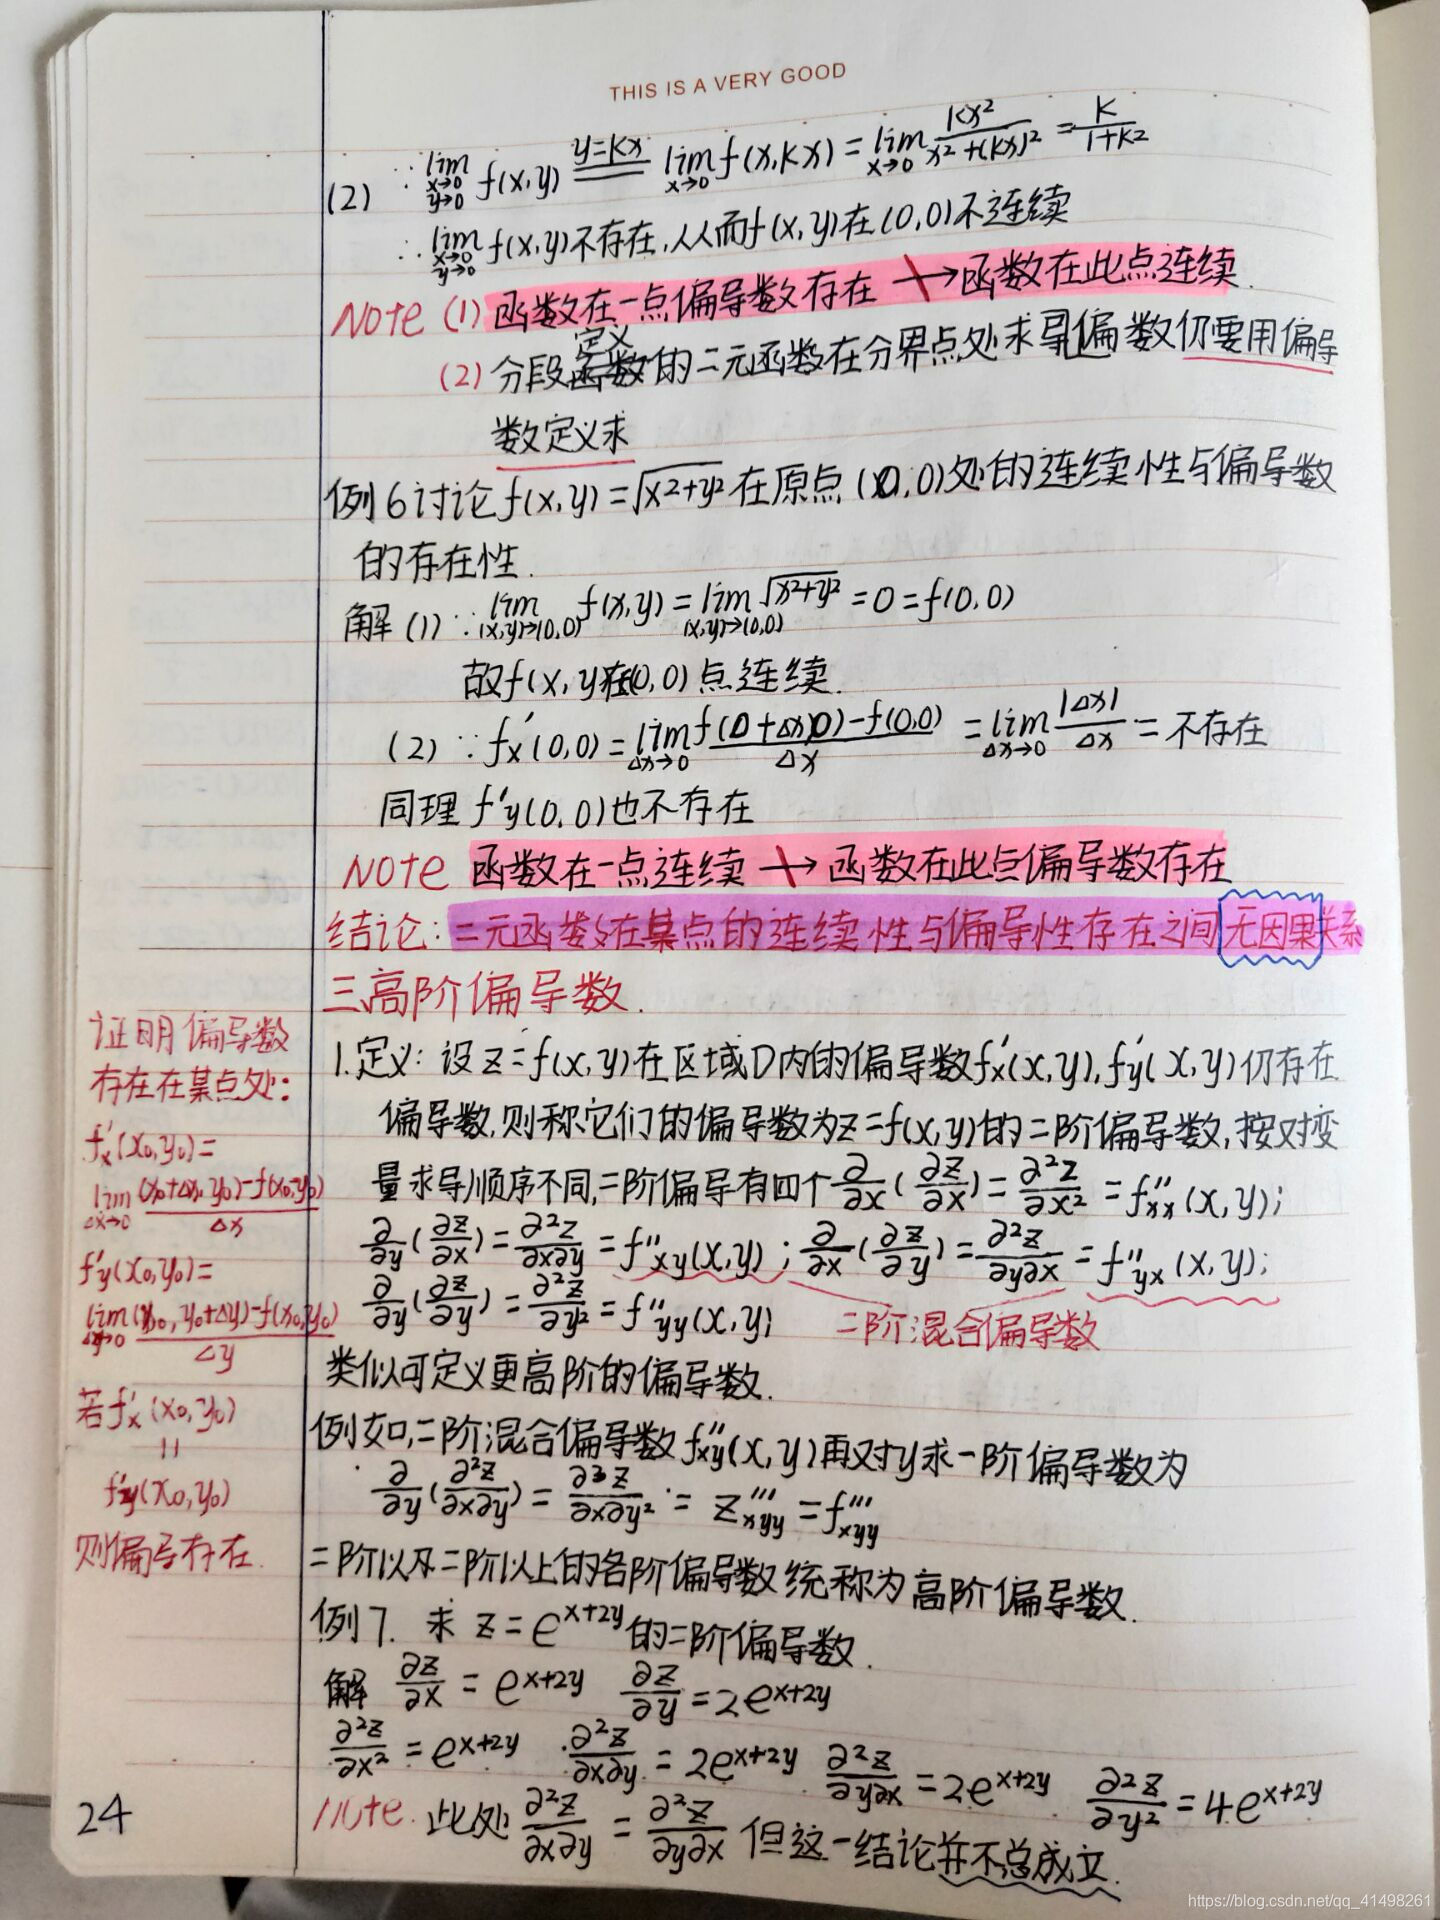 THIS IS A VERY GOOD
(2) ∵ lim x→0 y→0 f(x,y) y=kx lim x→0 f(x,kx) = lim x→0 kx²/(x²+(kx)²) = k/(1+k²)
∴ lim x→0 y→0 f(x,y)不存在,从而f(x,y)在(0,0)不连续
Note (1) 函数在一点偏导数存在 ↛ 函数在此点连续.
(2) 分段定义的二元函数在分界点处求偏导数仍要用偏导
数定义求
例6 讨论 f(x,y)=√(x²+y²) 在原点(0,0)处的连续性与偏导数
的存在性.
解 (1) ∵ lim (x,y)→(0,0) f(x,y) = lim (x,y)→(0,0) √(x²+y²) = 0 = f(0,0)
故f(x,y)在(0,0)点连续.
(2) ∵ f'x(0,0) = lim Δx→0 (f(0+Δx,0)-f(0,0))/Δx = lim Δx→0 |Δx|/Δx = 不存在
同理 f'y(0,0)也不存在
Note 函数在一点连续 ↛ 函数在此点偏导数存在
结论: 二元函数在某点的连续性与偏导性存在之间无因果关系
三.高阶偏导数.
1.定义: 设z=f(x,y)在区域D内的偏导数f'x(x,y),f'y(x,y)仍存在
偏导数,则称它们的偏导数为z=f(x,y)的二阶偏导数,按对变
量求导顺序不同,二阶偏导有四个 ∂/∂x(∂z/∂x)=∂²z/∂x²=f''xx(x,y);
∂/∂y(∂z/∂x)=∂²z/∂x∂y=f''xy(x,y); ∂/∂x(∂z/∂y)=∂²z/∂y∂x=f''yx(x,y);
∂/∂y(∂z/∂y)=∂²z/∂y²=f''yy(x,y; 二阶混合偏导数
类似可定义更高阶的偏导数.
例如,二阶混合偏导数f''xy(x,y)再对y求一阶偏导数为
∂/∂y(∂²z/∂x∂y)=∂³z/∂x∂y²=z'''xyy=f'''xyy
二阶以及二阶以上的各阶偏导数统称为高阶偏导数.
例7. 求 z=e^(x+2y)的二阶偏导数.
解 ∂z/∂x=e^(x+2y) ∂z/∂y=2e^(x+2y)
∂²z/∂x²=e^(x+2y) ∂²z/∂x∂y=2e^(x+2y) ∂²z/∂y∂x=2e^(x+2y) ∂²z/∂y²=4e^(x+2y)
Note. 此处 ∂²z/∂x∂y=∂²z/∂y∂x 但这一结论并不总成立.
证明偏导数
存在在某点处:
f'x(x₀,y₀)=
lim Δx→0 (x₀+Δx,y₀)-f(x₀,y₀)/Δx
f'y(x₀,y₀)=
lim Δy→0 (x₀,y₀+Δy)-f(x₀,y₀)/Δy
若f'x(x₀,y₀)
=
f'y(x₀,y₀)
则偏导存在.
24
https://blog.csdn.net/qq_41498261